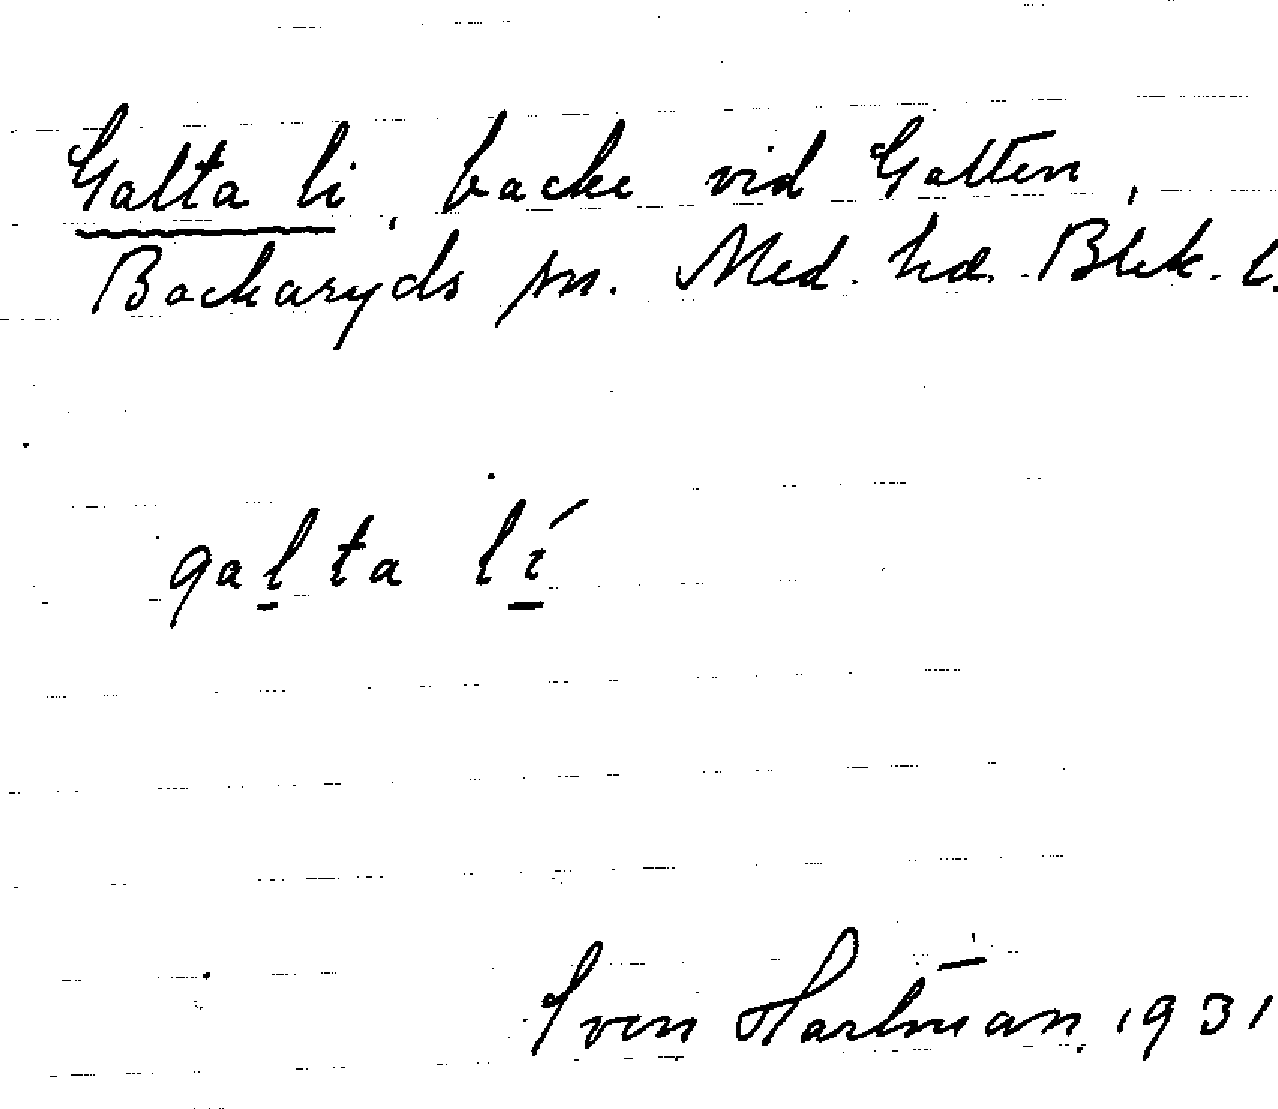 Galta li, backe vid Galten,
Backaryds sn. Med. hd. Blek. l.
galta lí
Sven Hartman. 1931